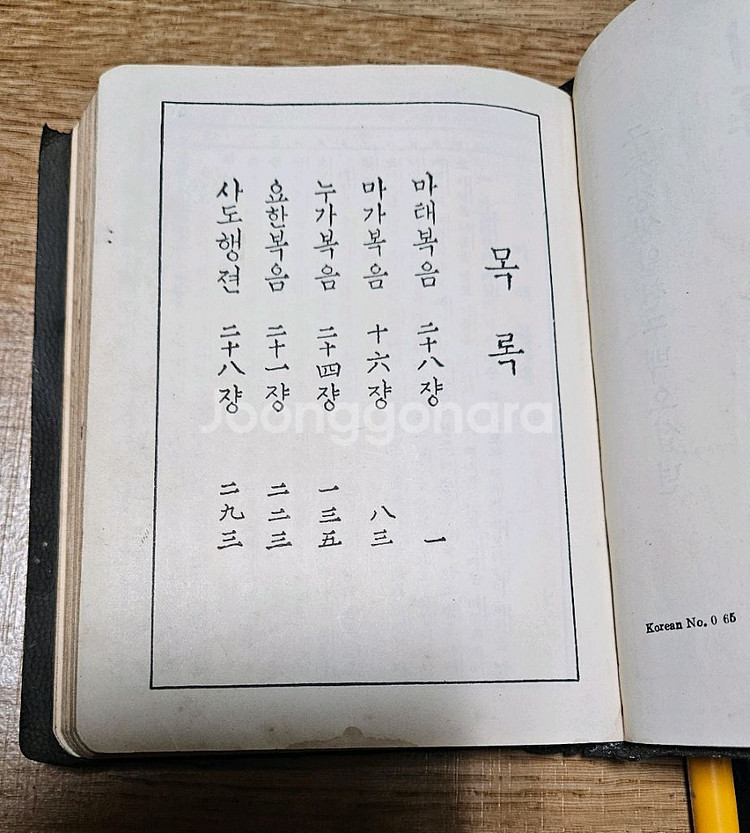 목록
마태복음 二十八쟝 一
마가복음 十六쟝 八三
누가복음 二十四쟝 一三五
요한복음 二十一쟝 二二三
사도행젼 二十八쟝 二九三
Joonggonara
Korean No. 0 65